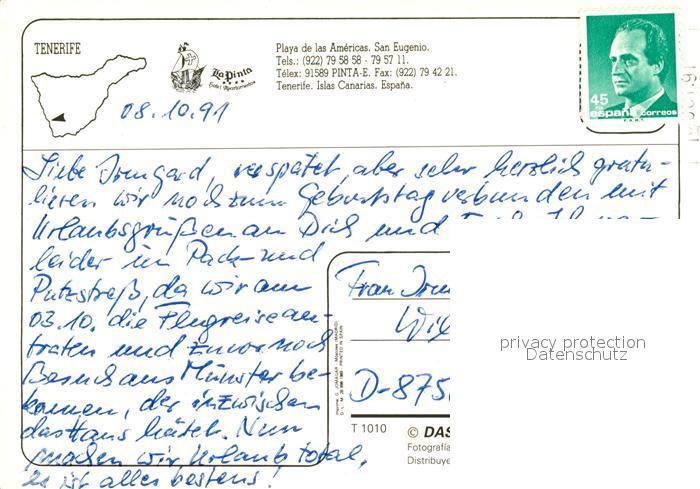 TENERIFE
La Pinta
Playa de las Américas. San Eugenio.
Tels.: (922) 79 58 58 - 79 57 11.
Télex: 91589 PINTA-E. Fax: (922) 79 42 21.
Tenerife. Islas Canarias. España.
45
españa correos
08.10.91
Liebe Irmgard, verspätet, aber sehr herzlich gratu-
lieren wir noch zum Geburtstag verbunden mit
Urlaubsgrüßen an Dich und
leider im Pack- und
Putzstreß, da wir am
03.10. die Flugreise an-
traten und zuvor noch
Besuch aus Münster be-
kamen, der inzwischen
das Haus hütet. Nun
machen wir Urlaub total,
es ist alles bestens!
Frau
D-875
privacy protection
Datenschutz
T 1010
© DAS
Fotografía
Distribuye